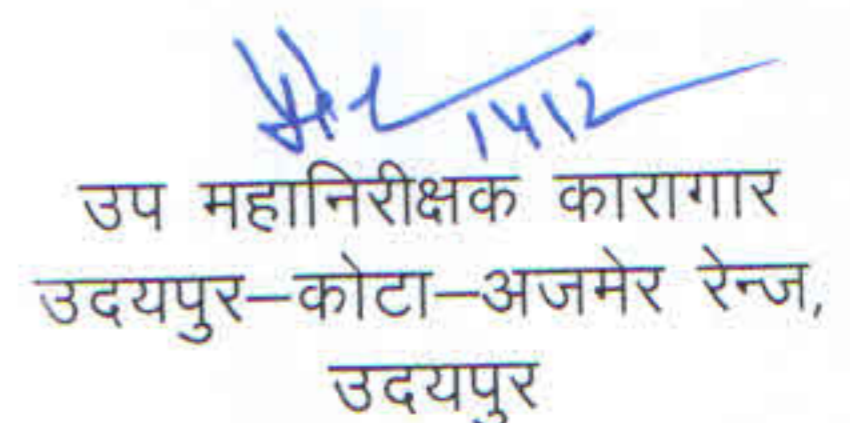 14|2
उप महानिरीक्षक कारागार
उदयपुर–कोटा–अजमेर रेन्ज,
उदयपुर